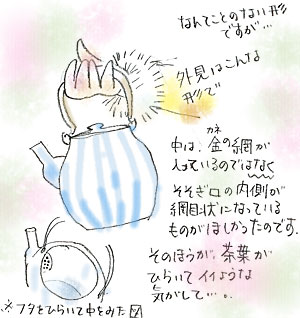 なんてことのない形
ですが…
外見はこんな
形で
カネ
中は、金の網が
入っているのではなく
そそぎ口の内側が
網目状になっている
ものがほしかったのです.
そのほうが、茶葉が
ひらいてイイような
気がして…。
※フタをひらいて中をみた図